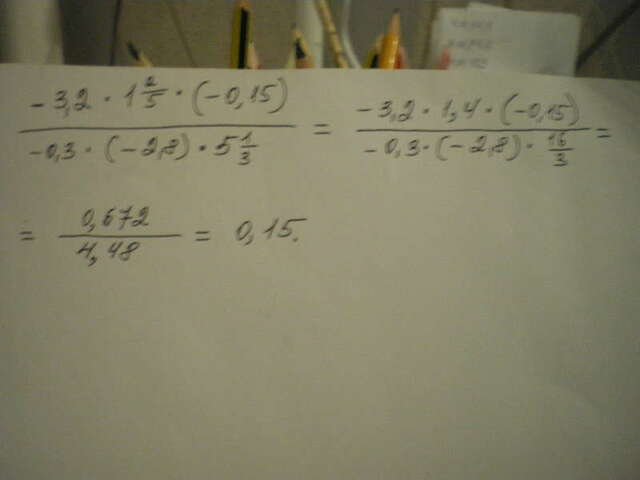 -3,2 · 1 2/5 · (-0,15) / -0,3 · (-2,8) · 5 1/3 = -3,2 · 1,4 · (-0,15) / -0,3 · (-2,8) · 16/3 =
= 0,672 / 4,48 = 0,15.